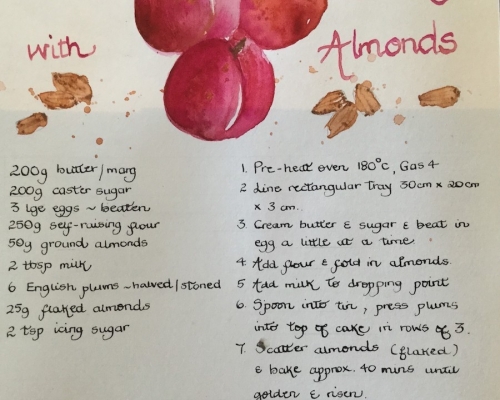 with
Almonds
200g butter/marg
200g caster sugar
3 lge eggs ~ beaten
250g self-raising flour
50g ground almonds
2 tbsp milk
6 English plums ~ halved/stoned
25g flaked almonds
2 tsp icing sugar
1. Pre-heat oven 180°c, Gas 4
2 Line rectangular Tray 30cm x 20cm
x 3 cm.
3. Cream butter & sugar & beat in
egg a little at a time
4. Add flour & fold in almonds.
5 Add milk to dropping point
6. Spoon into tin, press plums
into top of cake in rows of 3.
7. Scatter almonds (flaked)
& bake approx. 40 mins until
golden & risen.